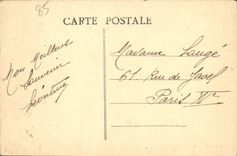 85
CARTE POSTALE
Mon Meilleur
Souvenir
Léontine
Madame Laugé
61 Rue de Javel
Paris XVe